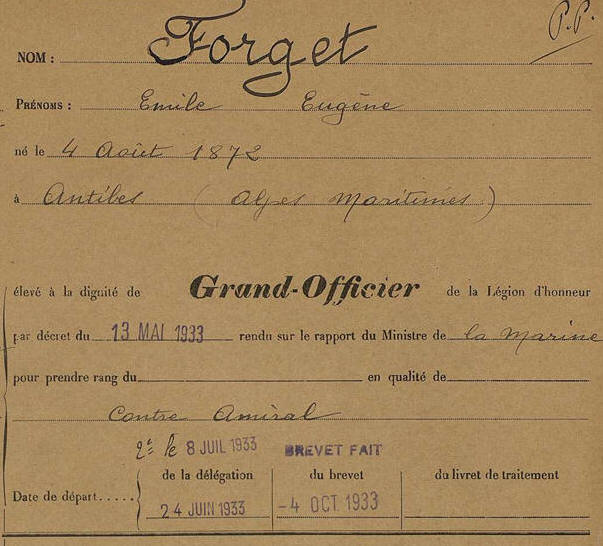 P.P.
NOM : Forget
PRÉNOMS : Emile Eugène
né le 4 Août 1872
à Antibes (Alpes Maritimes)
élevé à la dignité de Grand-Officier de la Légion d'honneur
par décret du 13 MAI 1933 rendu sur le rapport du Ministre de la Marine
pour prendre rang du en qualité de
Contre Amiral
2e le 8 JUIL 1933 BREVET FAIT
de la délégation du brevet du livret de traitement
Date de départ..... 24 JUIN 1933 -4 OCT 1933